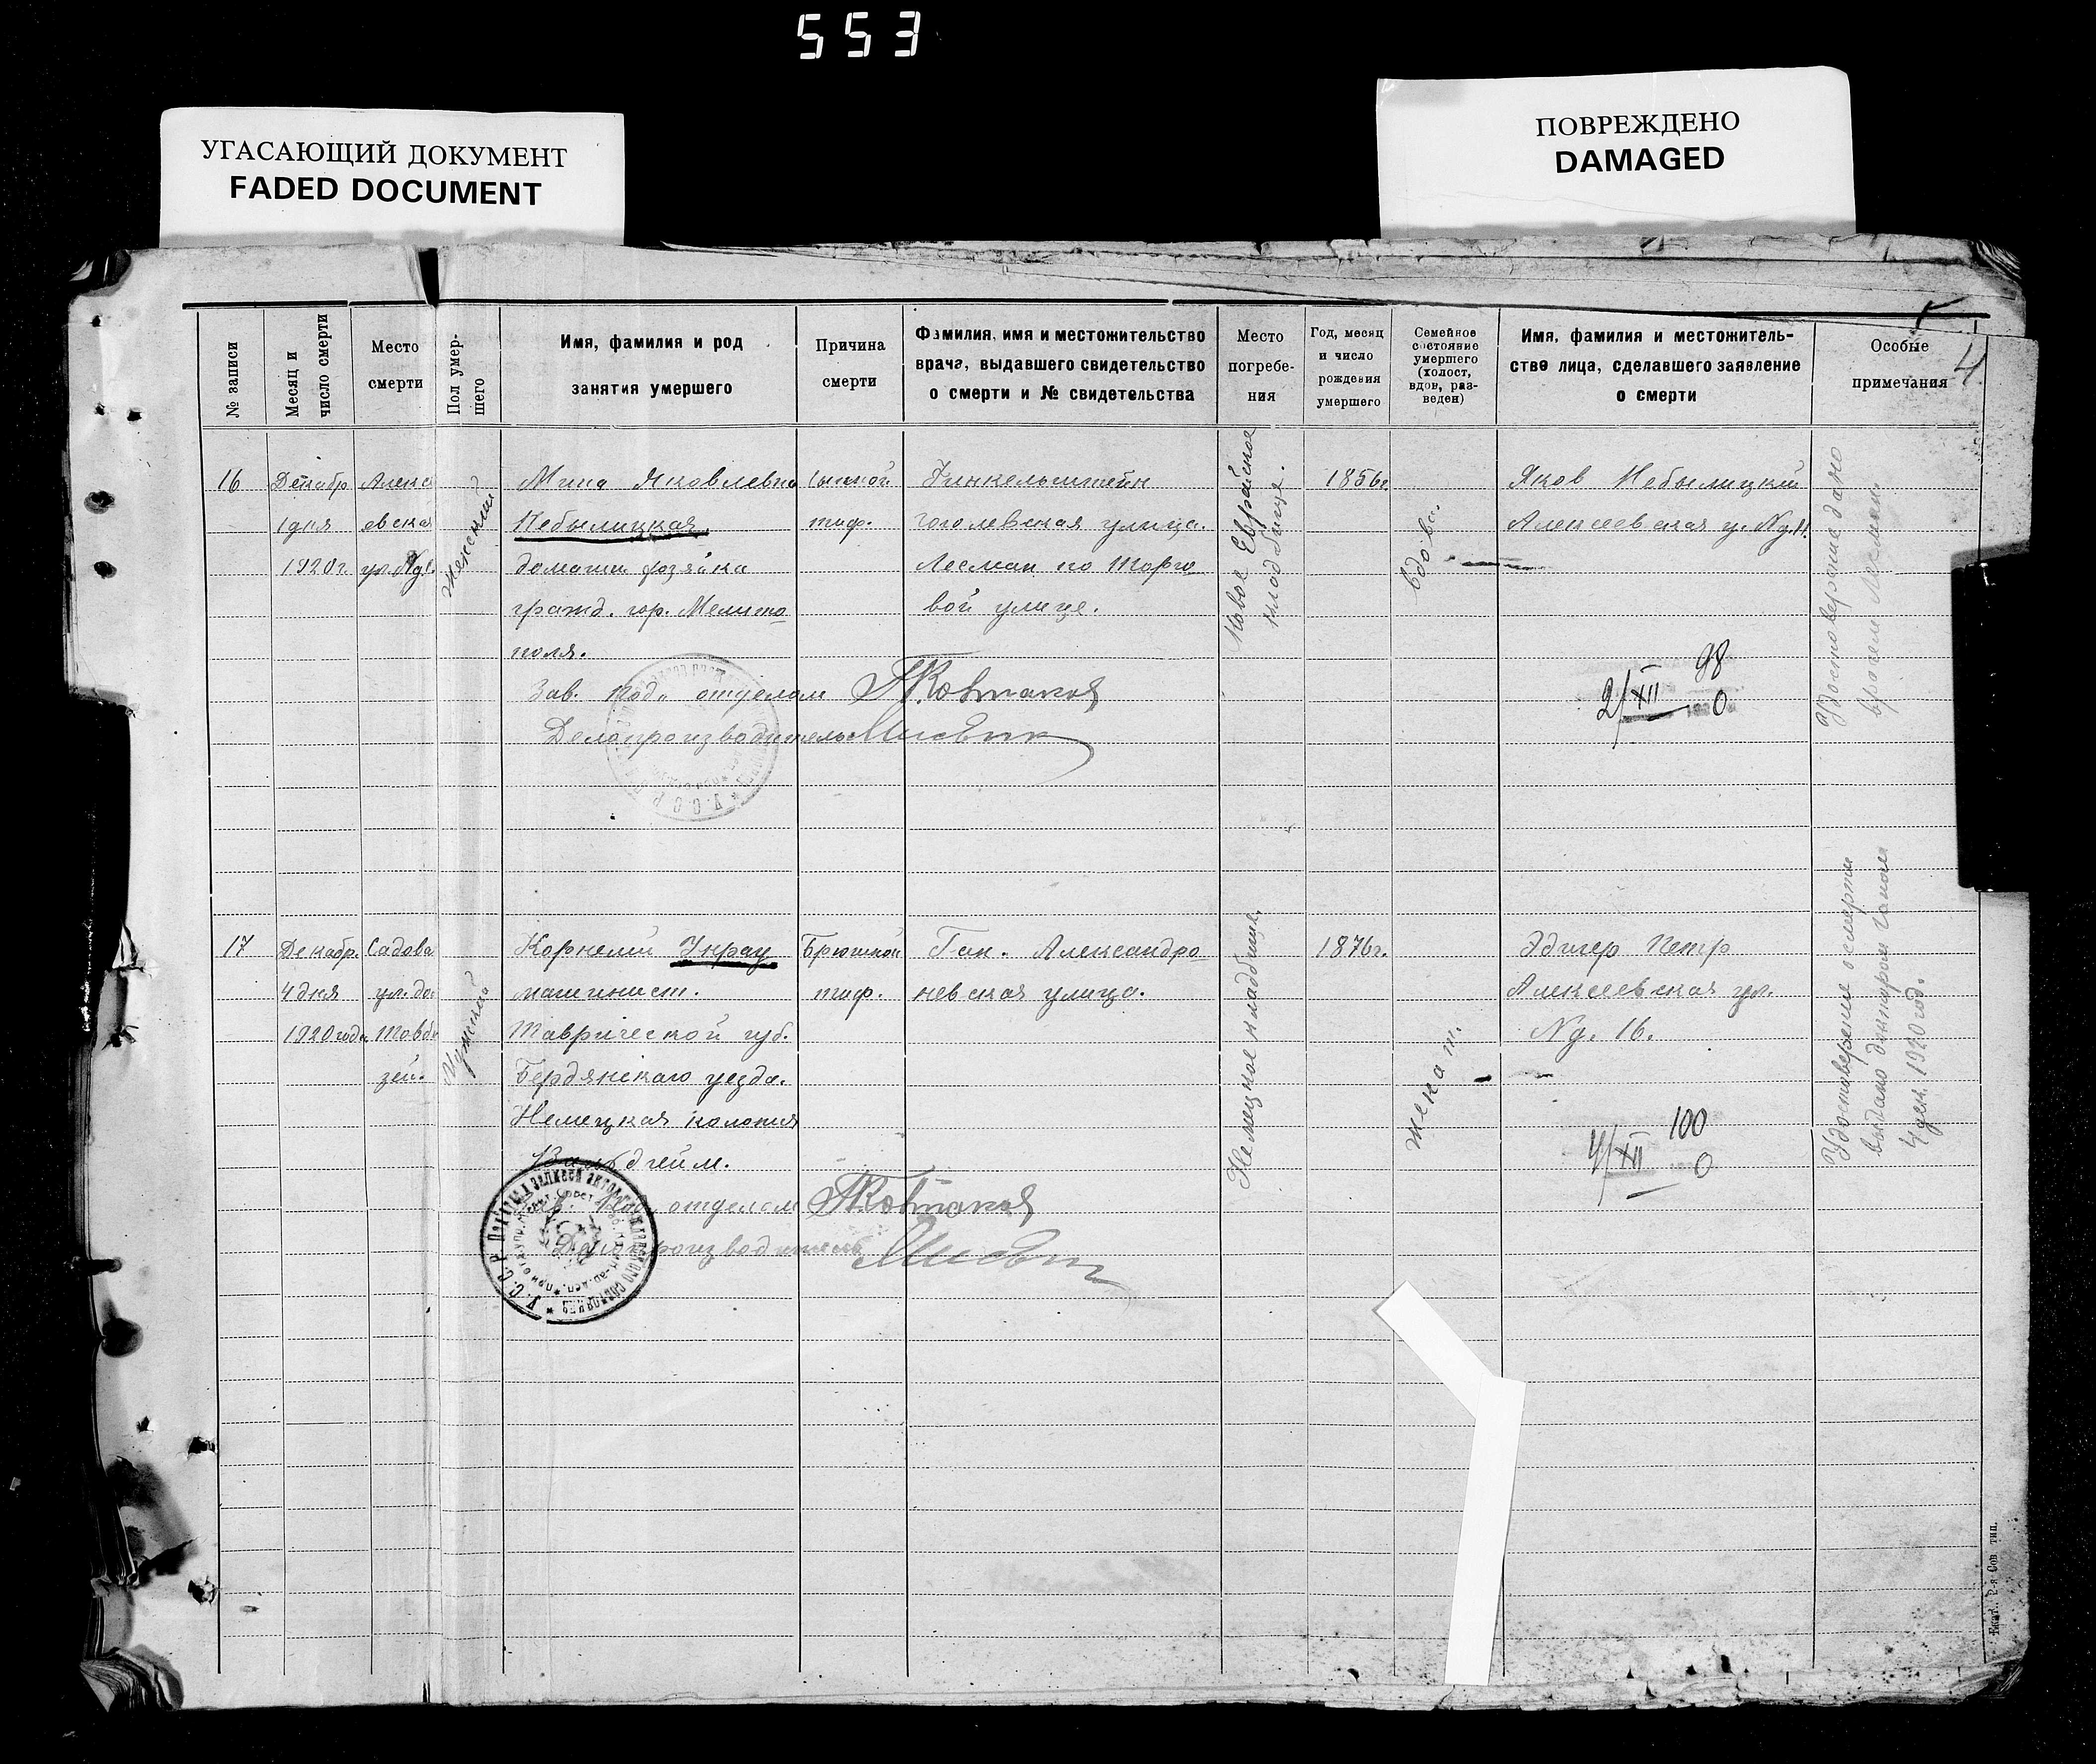 553
УГАСАЮЩИЙ ДОКУМЕНТ
FADED DOCUMENT
ПОВРЕЖДЕНО
DAMAGED
4
№ записи
Месяц и
число смерти
Место
смерти
Пол умер-
шего
Имя, фамилия и род
занятия умершего
Причина
смерти
Фамилия, имя и местожительство
врача, выдавшего свидетельство
о смерти и № свидетельства
Место
погребе-
ния
Год, месяц
и число
рождения
умершего
Семейное
состояние
умершего
(холост,
вдов, раз-
веден)
Имя, фамилия и местожитель-
ство лица, сделавшего заявление
о смерти
Особые
примечания
16
Декабр
1 дня
1920 г.
Алексе
евская
ул.
Женский
Мина Яковлевна
Небылицкая
домашн хозяйка
гражд. гор. Мелито
поля.
Сыпной
тиф.
Финкельштейн
Гоголевская улица.
Лесман по Торго
вой улице.
Новое Еврейское
кладбище.
1856г.
вдова.
Яков Небылицкий
Алексеевская у. №д.11.
Удостоверение дано
врачем Лесман.
Зав. Под. отделом
Делопроизводитель
2/XII 98
0
17
Декабр.
4 дня
1920 года
Садова
ул. до
Товбо
зей.
Мужской
Корнелий Унрау
машинист.
Таврической губ.
Бердянскаго уезда.
Немецкая колония
Вальдгейм.
Брюшной
тиф.
Ган. Александро
невская улица.
Немецкое кладбище.
1876г.
женат.
Эдигер Петр
Алексеевская ул.
№д. 16.
Удостоверение о смерти
выдано доктором Ганом
4 дек. 1920 год.
Зав. Под. отделом
Делопроизводитель
4/XII 100
0
У.С.С.Р. записи актов гражданского состояния
Екат. 2-я Сов. тип.